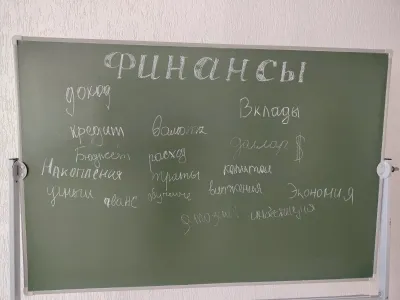 ФИНАНСЫ
доход
Вклады
кредит валюта
доллар $
Бюджет расход
Накопления траты капитал
аванс обучение вложения Экономия
инвестиция